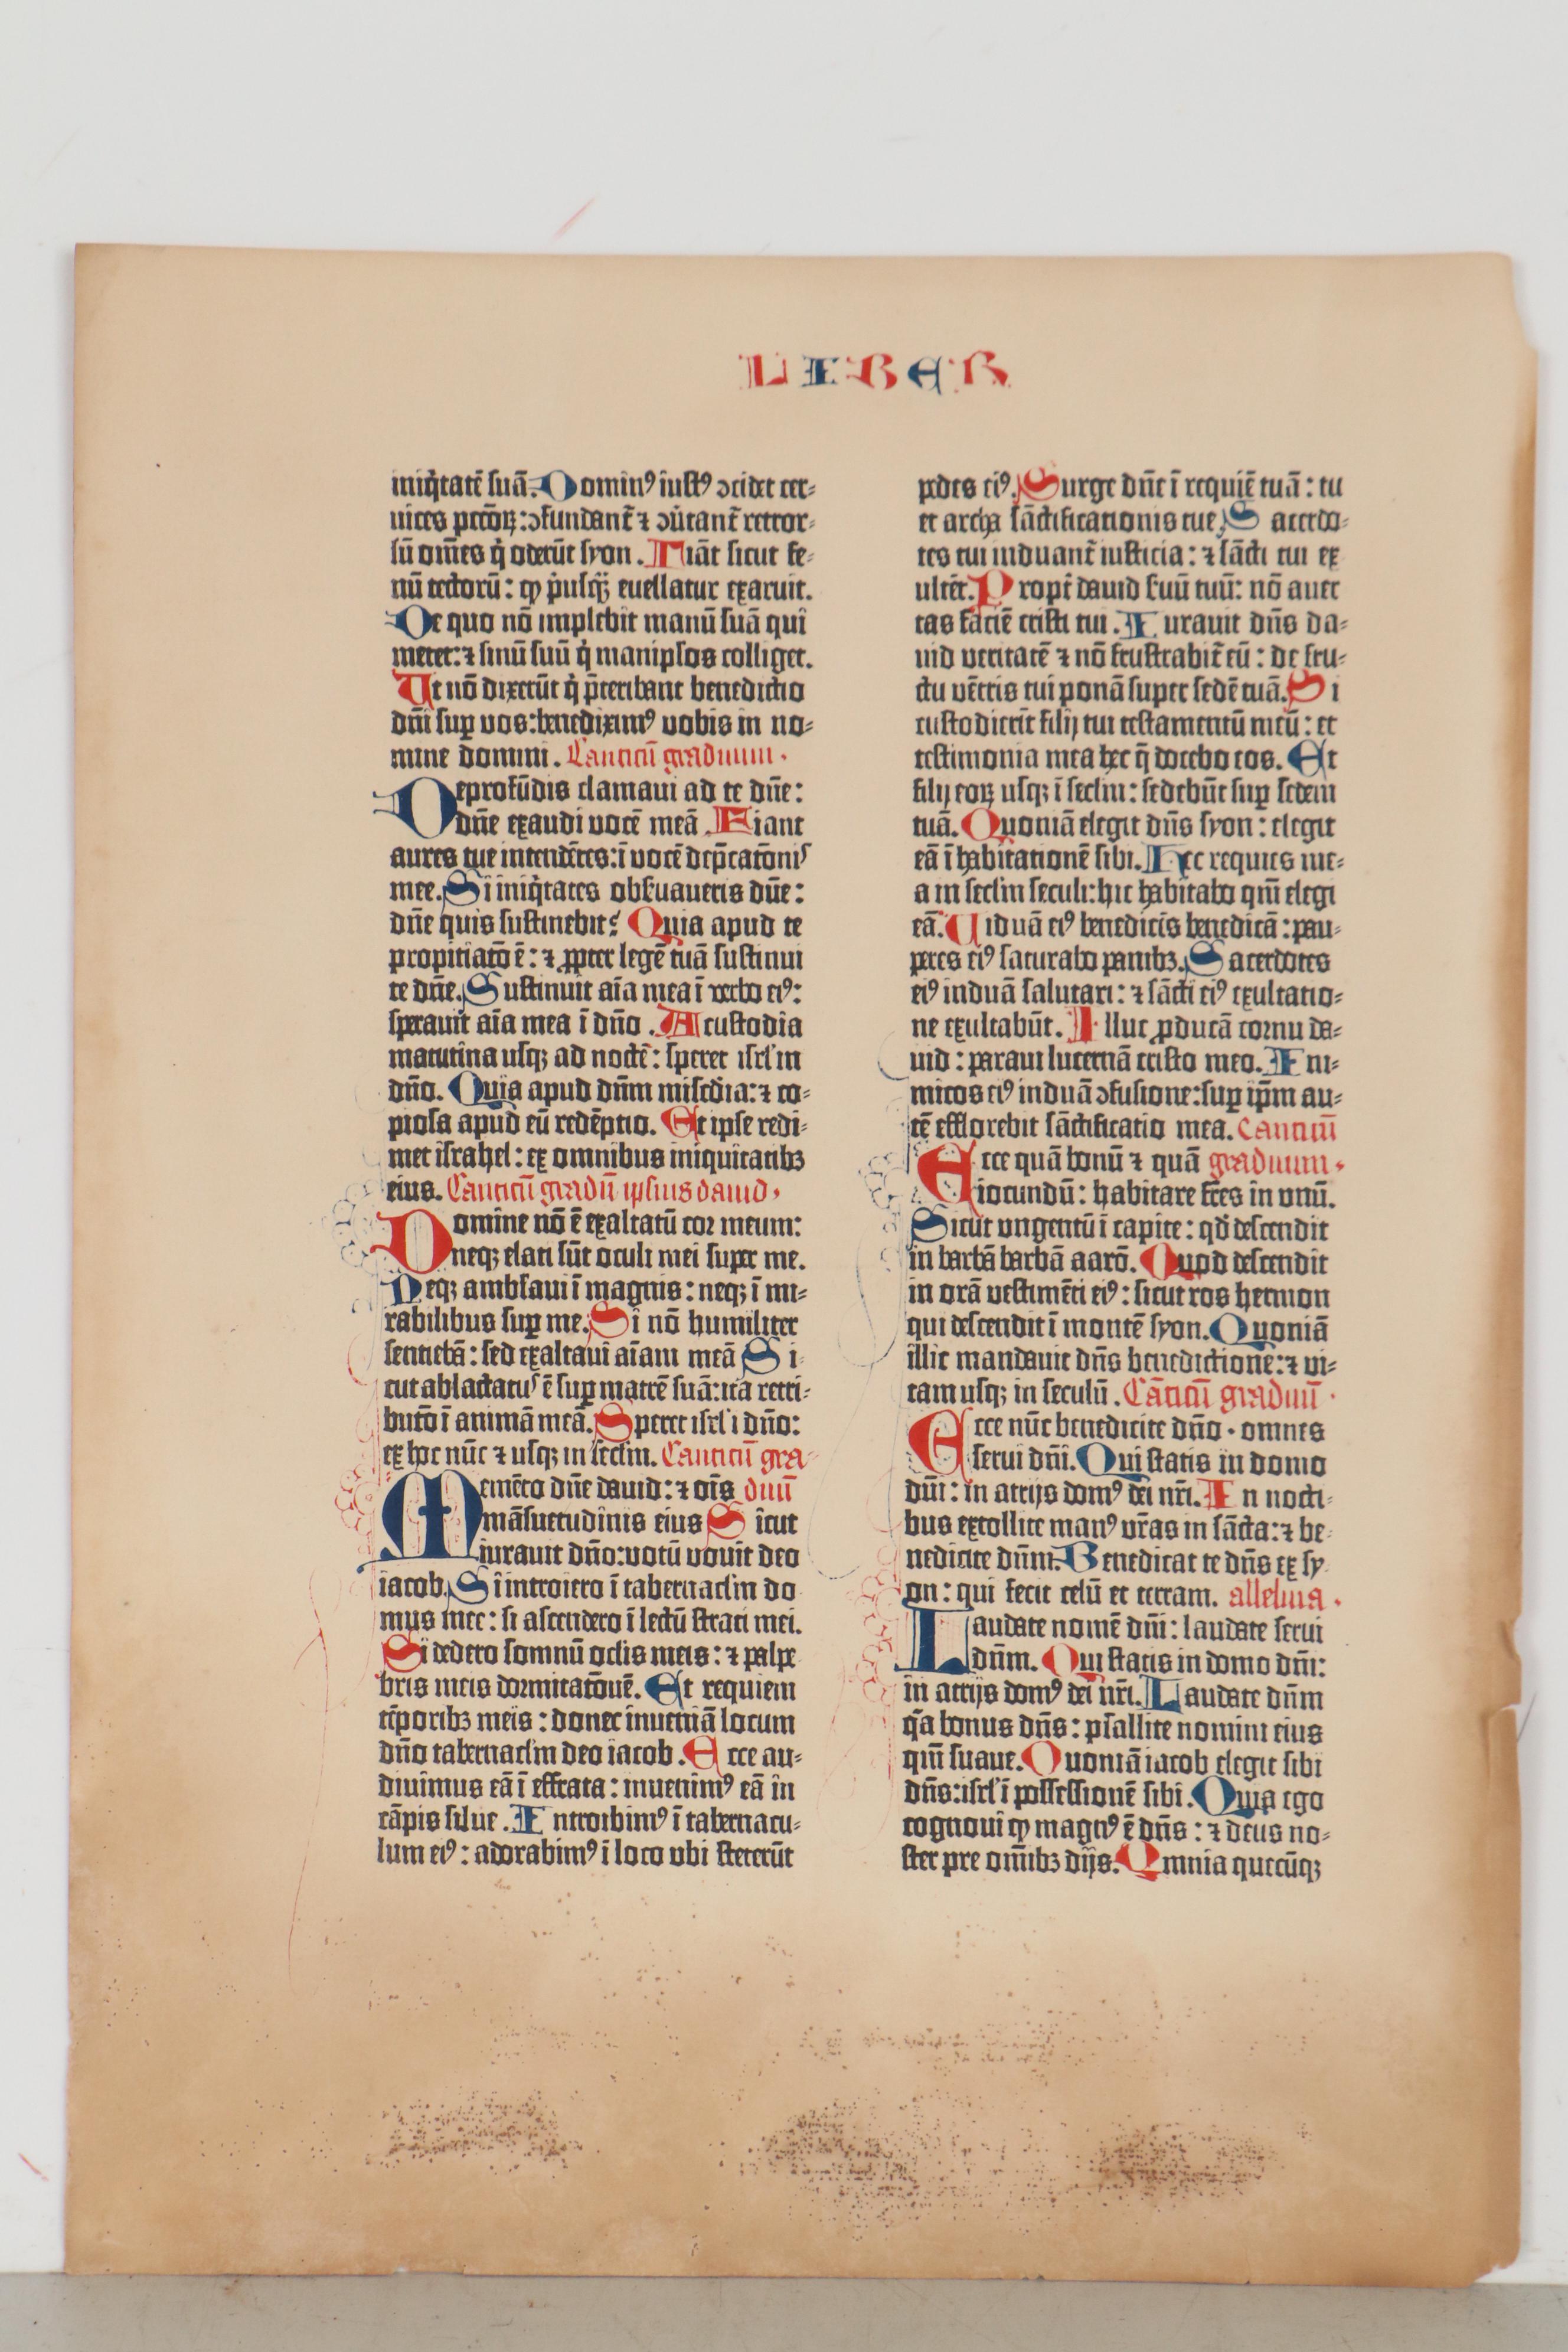 LIBER
iniq̇tatē suā. Dominꝰ iustꝰ ɔcidet cer⸗
uices pctōꝝ: ɔfundant̄ ⁊ ɔu̇tant̄ retror⸗
sū om̄es q̇ oderūt syon. Fiāt sicut fe⸗
nū tectorū: qꝫ pͥusq̄ꝫ euellatur exaruit.
De quo nō implebit manū suā qui
metet: ⁊ sinū suū q̇ manipl̓os colliget.
Et nō dixerūt q̇ p̄teribant benedictio
dn̄i suꝑ vos: benediximꝰ vobis in no⸗
mine domini. Canticū graduum.
De profūdis clamaui ad te dn̄e:
dn̄e exaudi vocē meā. Fiant
aures tue intendētes: ī vocē dep̄catōnis
mee. Si iniq̇tates obẜuaueris dn̄e:
dn̄e quis sustinebit? Quia apud te
propitiatō ē: ⁊ ꝓpter legē tuā sustinui
te dn̄e. Sustinuit aīa mea ī verbo eiꝰ:
sperauit aīa mea ī dn̄o. A custodia
matutina usqꝫ ad noctē: speret isrl̓ in
dn̄o. Quia apud dn̄m misc̄dia: ⁊ co⸗
piosa apud eū redēptio. Et ipse redi⸗
met israhel: ex omnibus iniquitatibꝫ
eius. Canticū gradū ipsius dauid.
Domine nō ē exaltatū cor meum:
neqꝫ elati sūt oculi mei super me.
Neqꝫ ambl̓aui ī magnis: neqꝫ ī mi⸗
rabilibus suꝑ me. Si nō humiliter
sentiebā: sed exaltaui aīam meā Si⸗
cut ablactatus ē suꝑ matrē suā: ita retri⸗
butō ī animā meā. Speret isrl̓ ī dn̄o:
ex hoc nūc ⁊ usqꝫ in secl̓m. Canticū gra⸗
Memēto dn̄e dauid: ⁊ oīs duū
māsuetudinis eius Sicut
iurauit dn̄o: votū vouit deo
iacob. Si introiero ī tabernacl̓m do
mus mee: si ascendero ī lectū strati mei.
Si dedero somnū ocl̓is meis: ⁊ palpe
bris meis dormitatōnē. Et requiem
tēporibꝫ meis: donec inueniā locum
dn̄o tabernacl̓m deo iacob. Ecce au⸗
diuimus eā ī effrata: inuenimꝰ eā in
cāpis silue. Introibimꝰ ī tabernacu⸗
lum eiꝰ: adorabimꝰ ī loco vbi steterūt
pedes eiꝰ. Surge dn̄e ī requiē tuā: tu
et archa sāctificationis tue. Sacerdo⸗
tes tui induant̄ iusticia: ⁊ sācti tui ex
ultēt. Propt̄ dauid ẜuū tuū: nō auer
tas faciē cristi tui. Iurauit dn̄s da⸗
uid veritatē ⁊ nō frustrabit̄ eū: de fru⸗
ctu vētris tui ponā super sedē tuā. Si
custodierīt filij tui testamentū meū: et
testimonia mea hec q̄ docebo eos. Et
filij eoꝝ usqꝫ ī secl̓m: sedebūt suꝑ sedem
tuā. Quoniā elegit dn̄s syon: elegit
eā ī habitationē sibi. Hec requies me⸗
a in secl̓m seculi: hic habitabo qm̄ elegi
eā. Viduā eiꝰ benedicēs benedicā: pau⸗
peres eiꝰ saturabo panibꝫ. Sacerdotes
eiꝰ induā salutari: ⁊ sācti eiꝰ exultatio⸗
ne exultabūt. Illuc ꝓducā cornu da⸗
uid: paraui lucernā cristo meo. Ini⸗
micos eiꝰ induā ɔfusione: suꝑ ip̄m au⸗
tē efflorebit sāctificatio mea. Canticū
Ecce quā bonū ⁊ quā graduum.
iocundū: habitare fr̄es in vnū.
Sicut vngentū ī capite: qd̄ descendit
in barbā barbā aarō. Quod descendit
in orā vestimēti eiꝰ: sicut ros hermon
qui descendit ī montē syon. Quoniā
illic mandauit dn̄s benedictionē: ⁊ vi⸗
tam usqꝫ in seculū. Cāticū graduū.
Ecce nūc benedicite dn̄o. omnes
serui dn̄i. Qui statis in domo
dn̄i: in atrijs domꝰ dei nr̄i. In nocti⸗
bus extollite manꝰ vr̄as in sācta: ⁊ be⸗
nedicite dn̄m. Benedicat te dn̄s ex sy
on: qui fecit celū et terram. alleluia.
Laudate nomē dn̄i: laudate serui
dn̄m. Qui statis in domo dn̄i:
in atrijs domꝰ dei nr̄i. Laudate dn̄m
q̄a bonus dn̄s: psallite nomini eius
qm̄ suaue. Quoniā iacob elegit sibi
dn̄s: isrl̓ ī possessionē sibi. Quia ego
cognoui qꝫ magnꝰ ē dn̄s: ⁊ deus no⸗
ster pre om̄ibꝫ dijs. Omnia quecūqꝫ